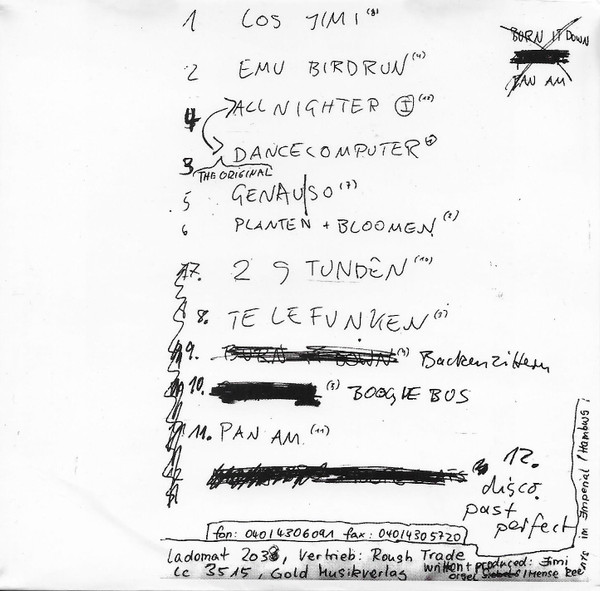 1 LOS JIMI (8)
2 EMU BIRDRUN (4)
4 ALL NIGHTER I
3 DANCECOMPUTER
THE ORIGINAL
5 GENAUSO (7)
6 PLANTEN + BLOOMEN
7. 2 9 TUNDEN (10)
8. TELEFUNKEN
9. BURN IT DOWN Backenzittern
10. BOOGIE BUS
11. PAN AM (11)
12. disco past perfect
BURN IT DOWN
PAN AM
fon: 040/4306091 fax: 040/4305720
Ladomat 2038, Vertrieb: Rough Trade
LC 3515, Gold Musikverlag
written + produced: Jimi
Hense Ree
in Imperial / Hamburg